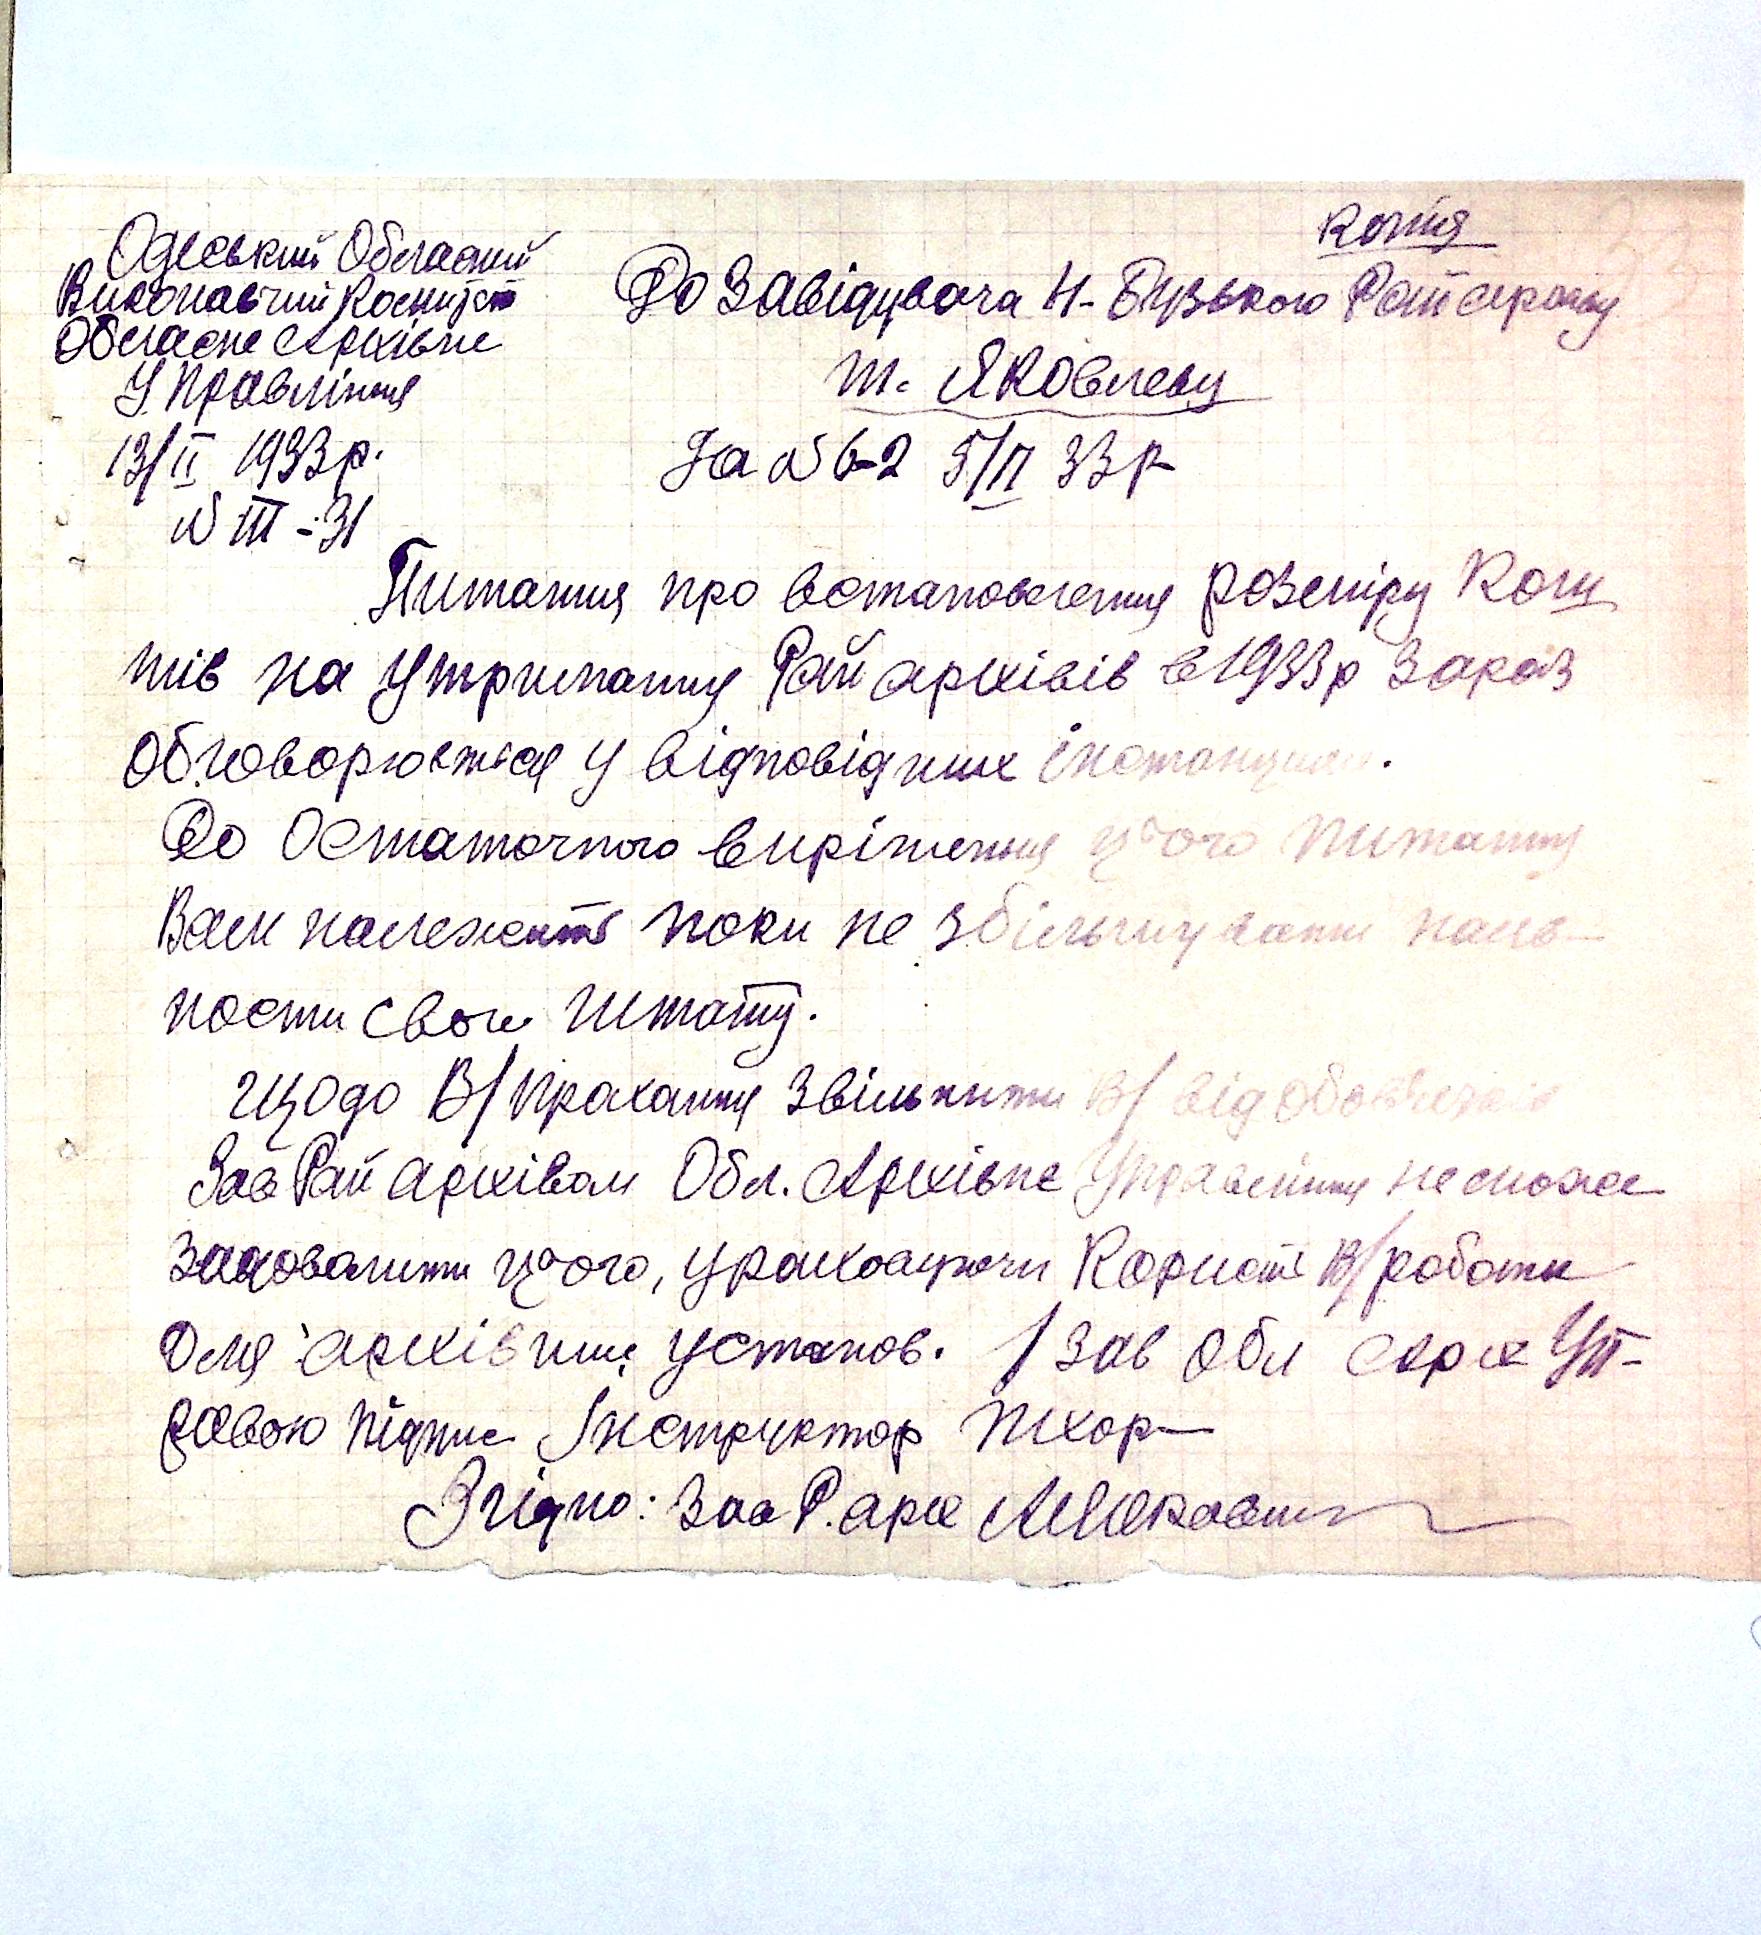 копія
Одеський Обласний
Виконавчий Комітет
Обласне Архівне
Управління
13/II 1933 р.
№ III - 31
До Завідувача Н-Бузького Райархіву
т. Яковлеву
На № 6-2 5/II 33 р
Питання про встановлення розміру кош
тів на утримання Райархівів в 1933 р зараз
обговорюється у відповідних інстанціях.
До остаточного вирішення цього питання
Вам належить поки не збільшувати наяв-
ности свого штату.
Щодо В/прохання звільнити В/ від обов'язків
Зав Райархівом Обл. Архівне Управління не може
задовольнити цього, ураховуючи користь В/роботи
для архівних установ. / Зав Обл Арх Уп-
равою підпис Інструктор Тхор
Згідно: Зав Р. арх